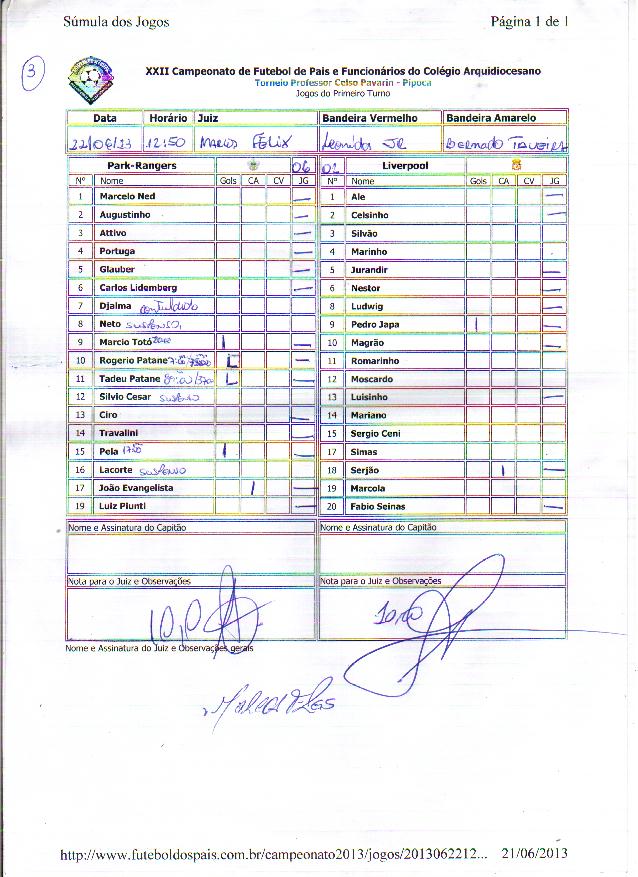 Súmula dos Jogos Página 1 de 1
3
XXII Campeonato de Futebol de Pais e Funcionários do Colégio Arquidiocesano
Torneio Professor Celso Pavarin - Pipoca
Jogos do Primeiro Turno
Data Horário Juiz Bandeira Vermelho Bandeira Amarelo
22/06/13 12:50 Marcos Felix Leonidas Jr Bernado Taveira
Park-Rangers 06 02 Liverpool
Nº Nome Gols CA CV JG Nº Nome Gols CA CV JG
1 Marcelo Ned — 1 Ale —
2 Augustinho — 2 Celsinho —
3 Attivo — 3 Silvão
4 Portuga — 4 Marinho
5 Glauber — 5 Jurandir —
6 Carlos Lidemberg — 6 Nestor —
7 Djalma contundido 8 Ludwig —
8 Neto suspenso 9 Pedro Japa | —
9 Marcio Totó | — 10 Magrão —
10 Rogerio Patane L — 11 Romarinho
11 Tadeu Patane L — 12 Moscardo
12 Silvio Cesar suspenso 13 Luisinho —
13 Ciro — 14 Mariano
14 Travalini — 15 Sergio Ceni
15 Pela | — 17 Simas
16 Lacorte suspenso 18 Serjão | —
17 João Evangelista | — 19 Marcola
19 Luiz Piunti — 20 Fabio Seinas —
Nome e Assinatura do Capitão Nome e Assinatura do Capitão
Nota para o Juiz e Observações Nota para o Juiz e Observações
10,0
Nome e Assinatura do Juiz e Observações gerais
http://www.futeboldospais.com.br/campeonato2013/jogos/2013062212... 21/06/2013